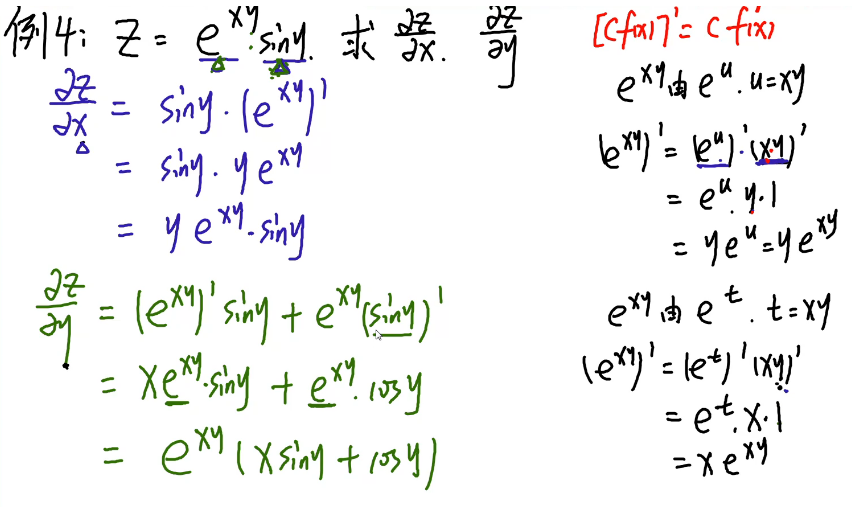 例4: Z = e^{xy}·siny. 求 ∂z/∂x. ∂z/∂y
∂z/∂x = siny·(e^{xy})'
= siny·ye^{xy}
= ye^{xy}·siny
∂z/∂y = (e^{xy})'siny + e^{xy}(siny)'
= xe^{xy}·siny + e^{xy}·cosy
= e^{xy}(xsiny + cosy)
[Cf(x)]' = Cf'(x)
e^{xy}由e^u. u=xy
(e^{xy})' = (e^u)'·(xy)'
= e^u.y·1
= ye^u = ye^{xy}
e^{xy}由e^t. t=xy
(e^{xy})' = (e^t)'(xy)'
= e^t.x·1
= xe^{xy}